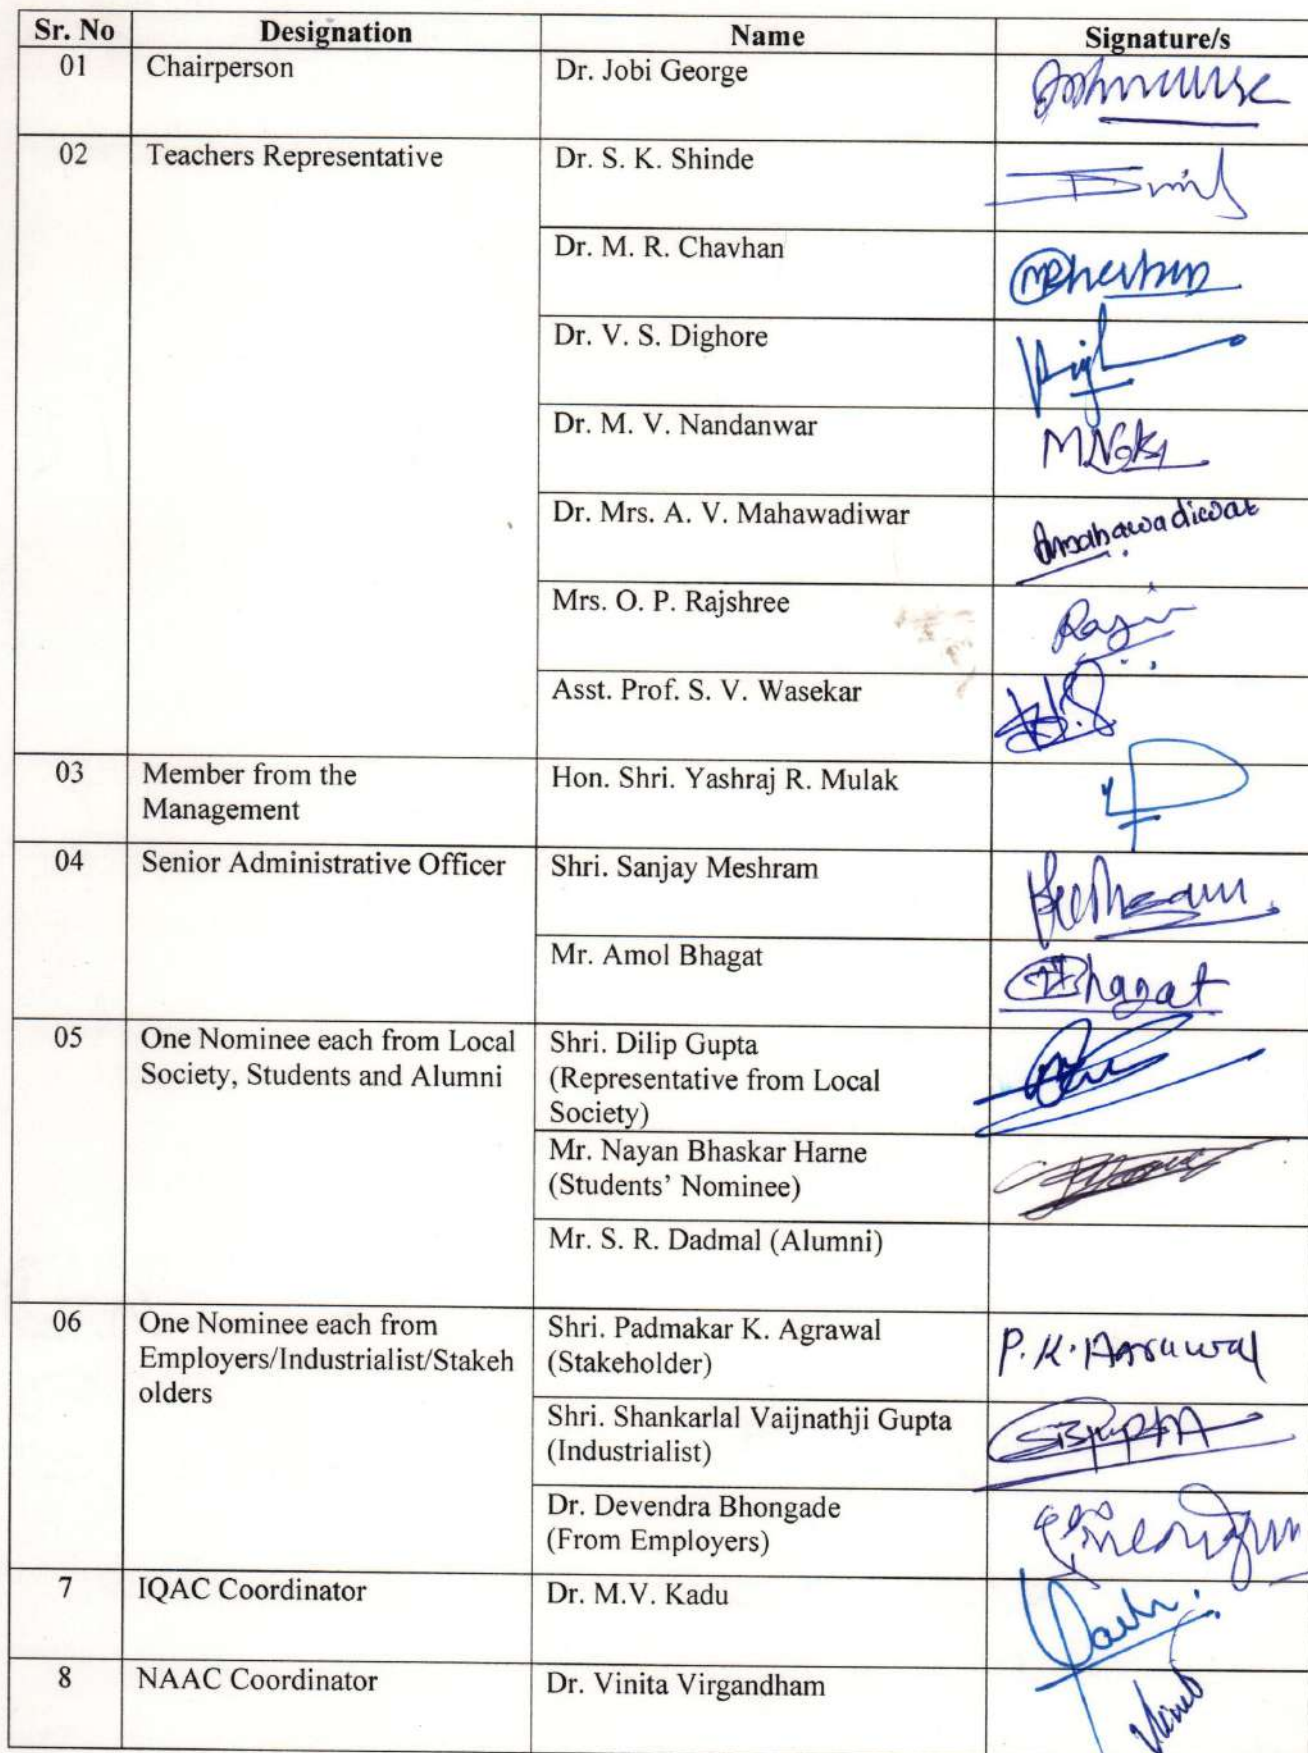 Sr. No Designation Name Signature/s
01 Chairperson Dr. Jobi George
02 Teachers Representative Dr. S. K. Shinde
Dr. M. R. Chavhan
Dr. V. S. Dighore
Dr. M. V. Nandanwar
Dr. Mrs. A. V. Mahawadiwar Amahawadiwar
Mrs. O. P. Rajshree
Asst. Prof. S. V. Wasekar
03 Member from the Hon. Shri. Yashraj R. Mulak
Management
04 Senior Administrative Officer Shri. Sanjay Meshram
Mr. Amol Bhagat Bhagat
05 One Nominee each from Local Shri. Dilip Gupta
Society, Students and Alumni (Representative from Local
Society)
Mr. Nayan Bhaskar Harne
(Students’ Nominee)
Mr. S. R. Dadmal (Alumni)
06 One Nominee each from Shri. Padmakar K. Agrawal P. K. Agrawal
Employers/Industrialist/Stakeh (Stakeholder)
olders
Shri. Shankarlal Vaijnathji Gupta
(Industrialist)
Dr. Devendra Bhongade
(From Employers)
7 IQAC Coordinator Dr. M.V. Kadu
8 NAAC Coordinator Dr. Vinita Virgandham